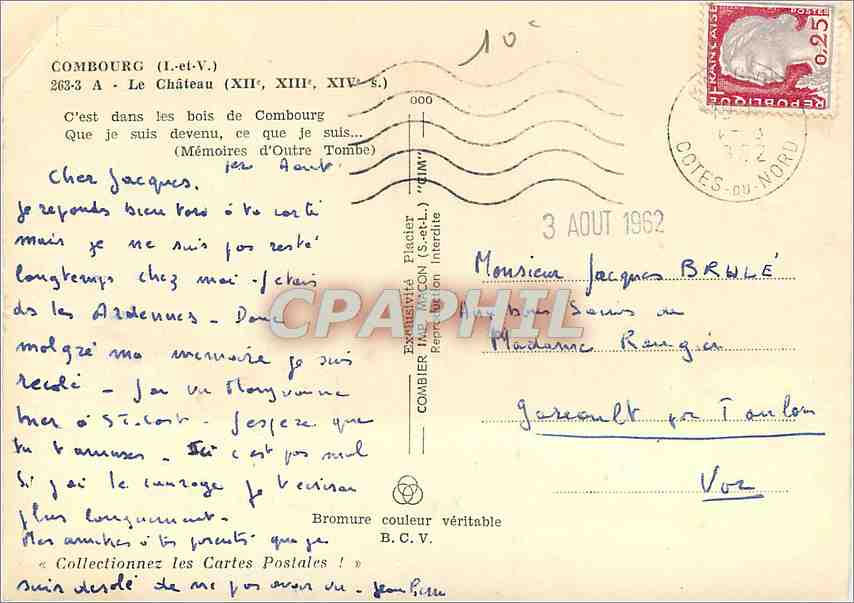 10c
COMBOURG (I.-et-V.)
263-3 A - Le Château (XIIe, XIIIe, XIVe s.)
C'est dans les bois de Combourg
Que je suis devenu, ce que je suis...
(Mémoires d'Outre Tombe)
1er Aout.
Cher Jacques,
Je reponds bien tard à ta carte
mais je ne suis pas resté
longtemps chez moi - J'etais
ds les Ardennes - Donc
malgré ma memoire je suis
recalé - J'ai vu
hier à St-Cast - J'espere que
tu t'amuses - Ici c'est pas mal
Si j'ai le courage je t'ecrirai
plus longuement -
Mes amitiés à tes parents que je
suis desolé de ne pas avoir vu - Jean Pierre
Bromure couleur véritable
B. C. V.
« Collectionnez les Cartes Postales ! »
000
Exclusivité Placier
COMBIER IMP. MACON (S.-et-L.) "CIM"
Reproduction Interdite
REPUBLIQUE FRANÇAISE
POSTES
0,25
COTES-DU-NORD
3 AOUT 1962
Monsieur Jacques BRULÉ
Aux bons Soins de
Madame Rougier
Gareoult par Toulon
Var
CPAPHIL